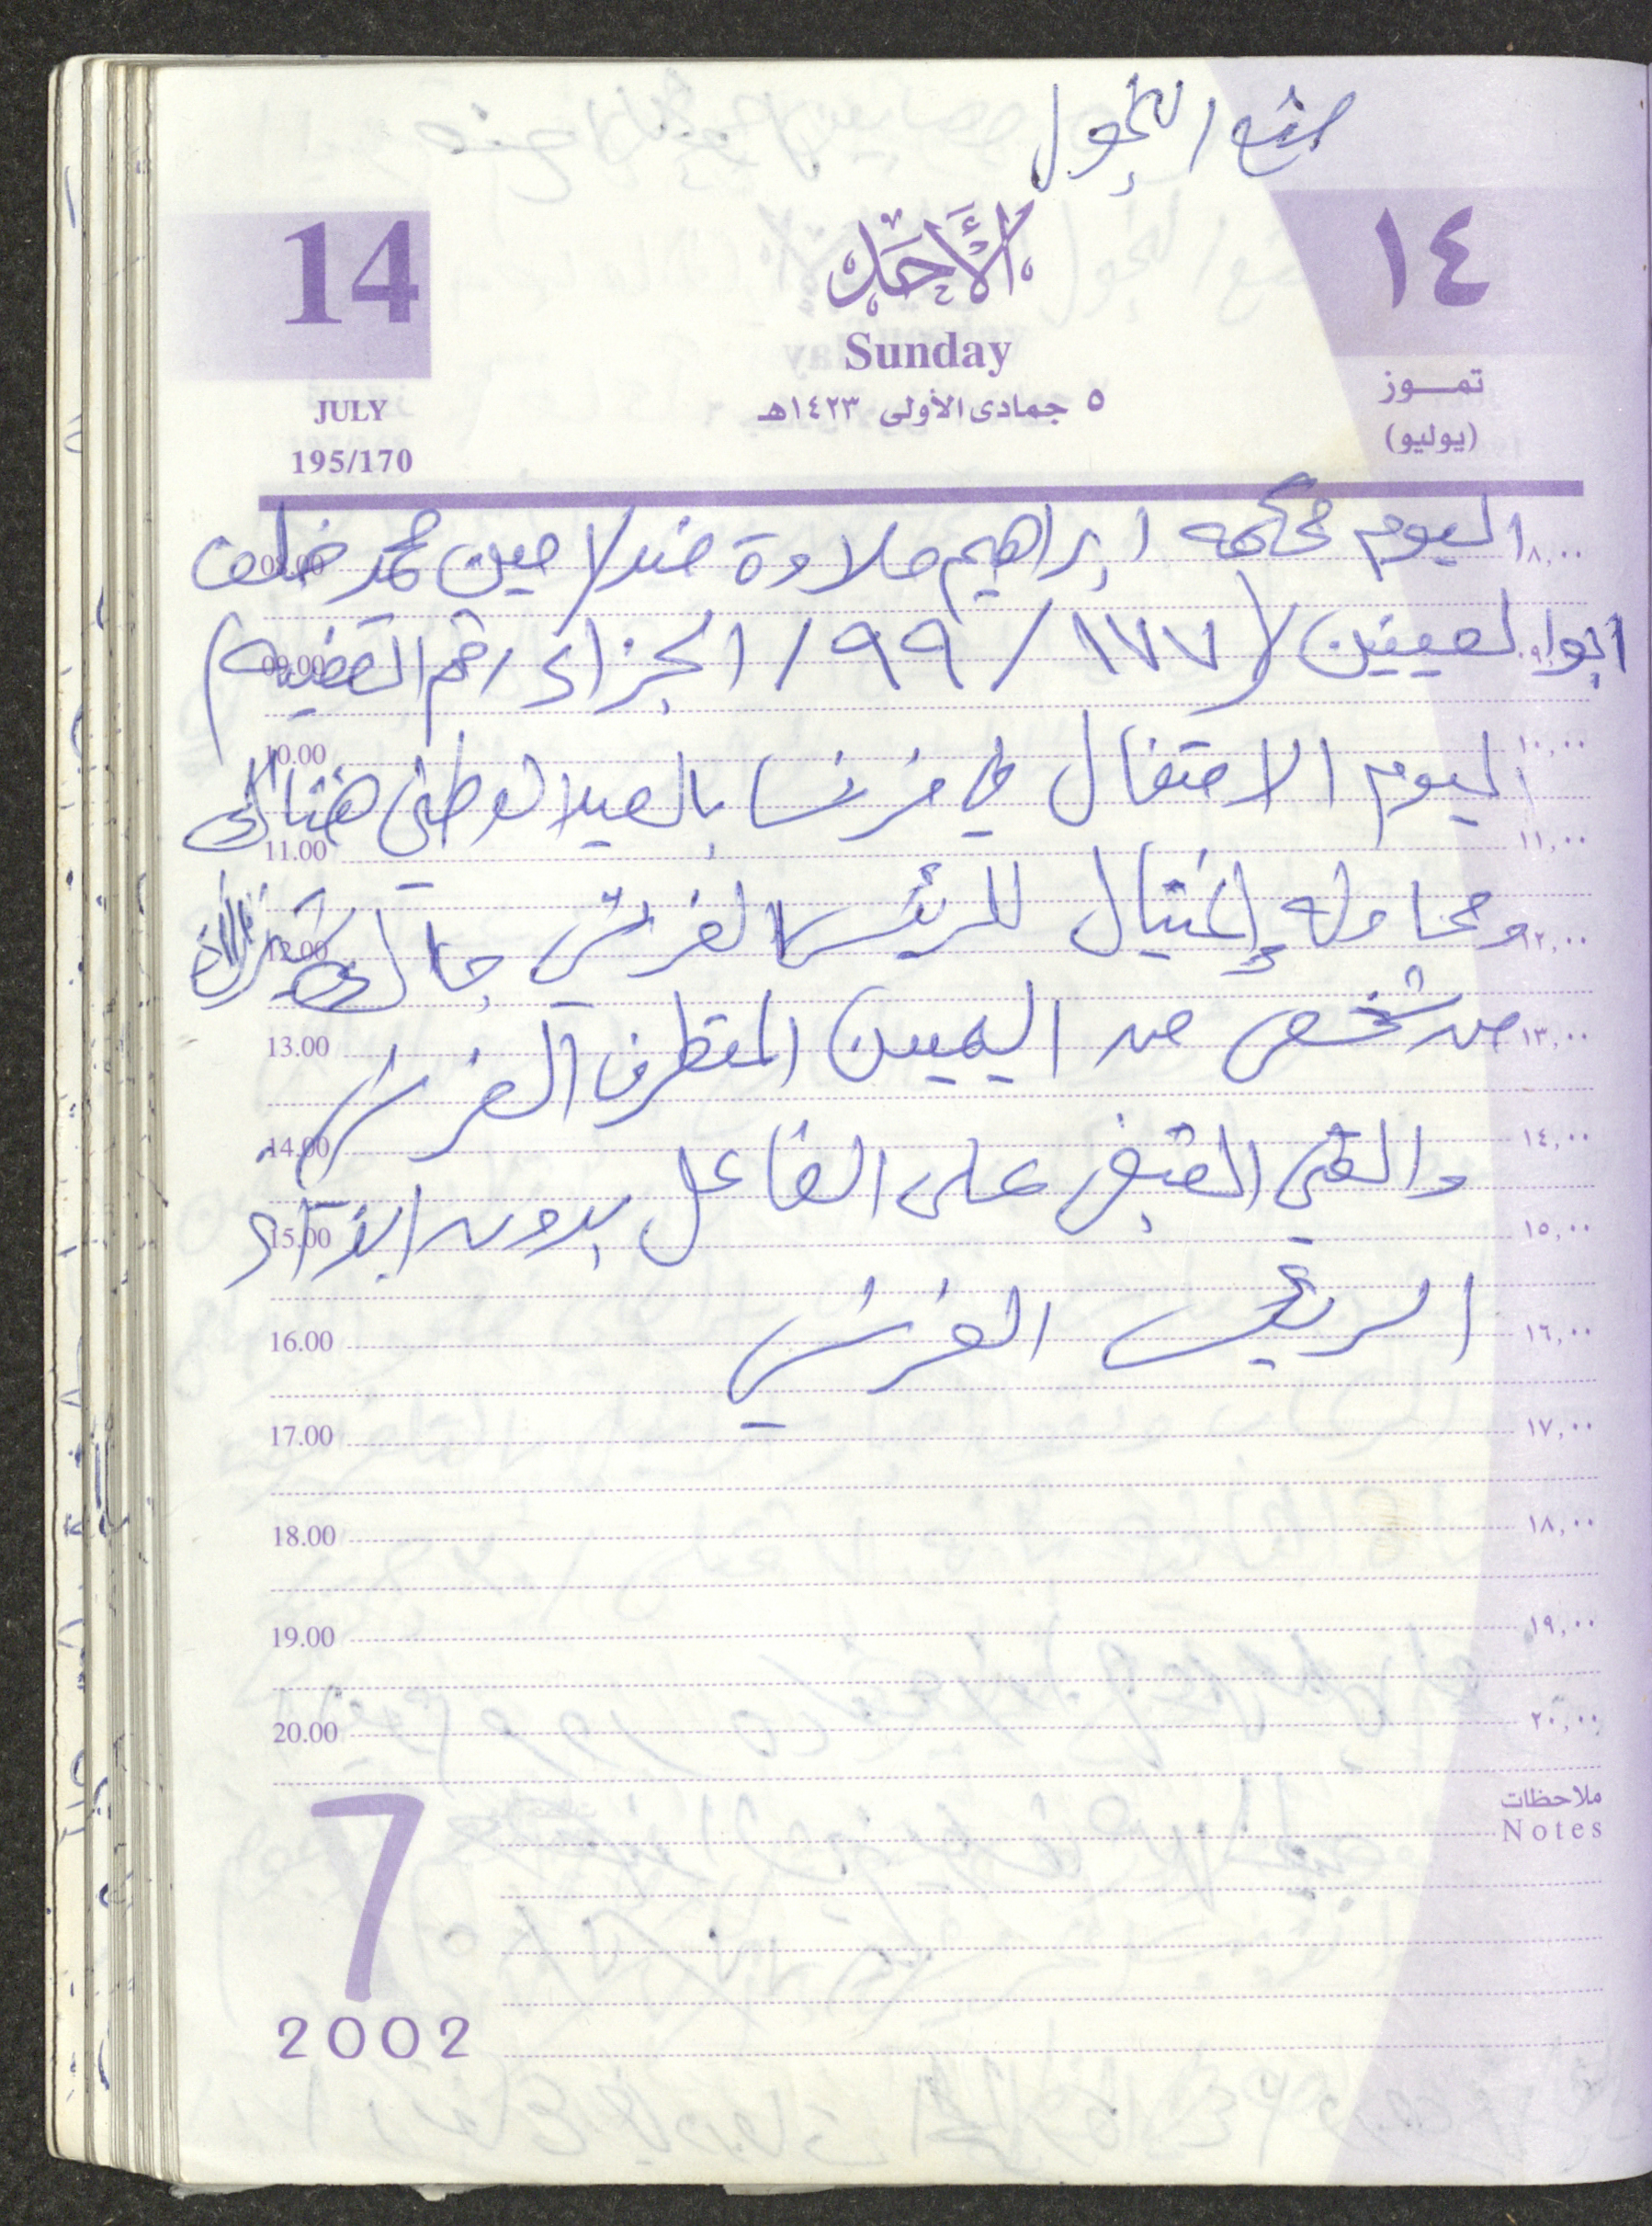 منع التجول
14
الأَحَد
١٤
Sunday
JULY
٥ جمادى الأولى ١٤٢٣هـ
تمـوز
195/170
(يوليو)
اليوم محكمه ابراهيم حلاوة ضد لامين محمد خلف
08.00
٨,٠٠
ابو العينين (١٧٧ / ٩٩ / الجزاء رقم القضيه)
09.00
٩,٠٠
اليوم الاحتفال في فرنسا بالعيد الوطني هناك
10.00
١٠,٠٠
11.00
١١,٠٠
ومحاوله إغتيال للرئيس الفرنسي جاك شيراك
12.00
١٢,٠٠
من شخص من اليميين المتطرف الفرنسي
13.00
١٣,٠٠
والقي القبض على الفاعل بدون ايذاء
14.00
١٤,٠٠
15.00
١٥,٠٠
الرئيس الفرنسي
16.00
١٦,٠٠
17.00
١٧,٠٠
18.00
١٨,٠٠
19.00
١٩,٠٠
20.00
٢٠,٠٠
ملاحظات
Notes
7
2002